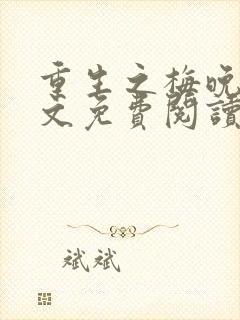 重生之梅晚
文免費閱讀
斌斌